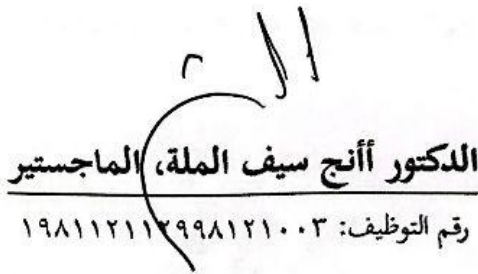 الدكتور أأنج سيف الملة، الماجستير
رقم التوظيف: ١٩٨١١٢١١٢٩٩٨١٢١٠٠٣